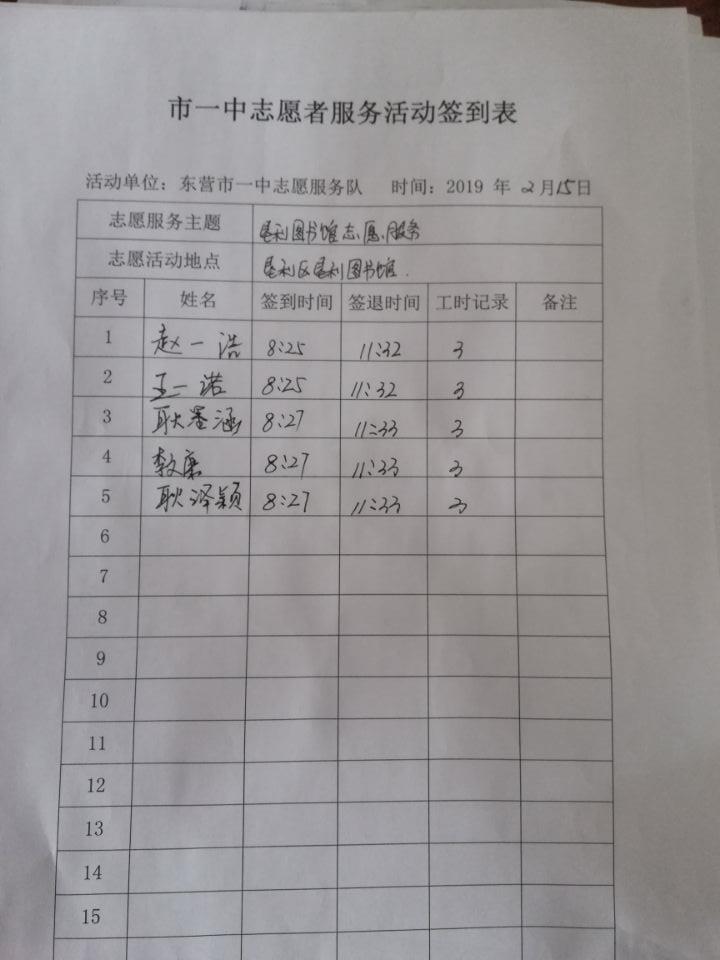 市一中志愿者服务活动签到表
活动单位：东营市一中志愿服务队 时间：2019 年 2月15日
志愿服务主题 垦利图书馆志愿服务
志愿活动地点 垦利区垦利图书馆.
序号 姓名 签到时间 签退时间 工时记录 备注
1 赵一浩 8:25 11:32 3
2 王一诺 8:25 11:32 3
3 耿墨涵 8:27 11:33 3
4 8:27 11:33 3
5 耿泽颖 8:27 11:33 3
6
7
8
9
10
11
12
13
14
15